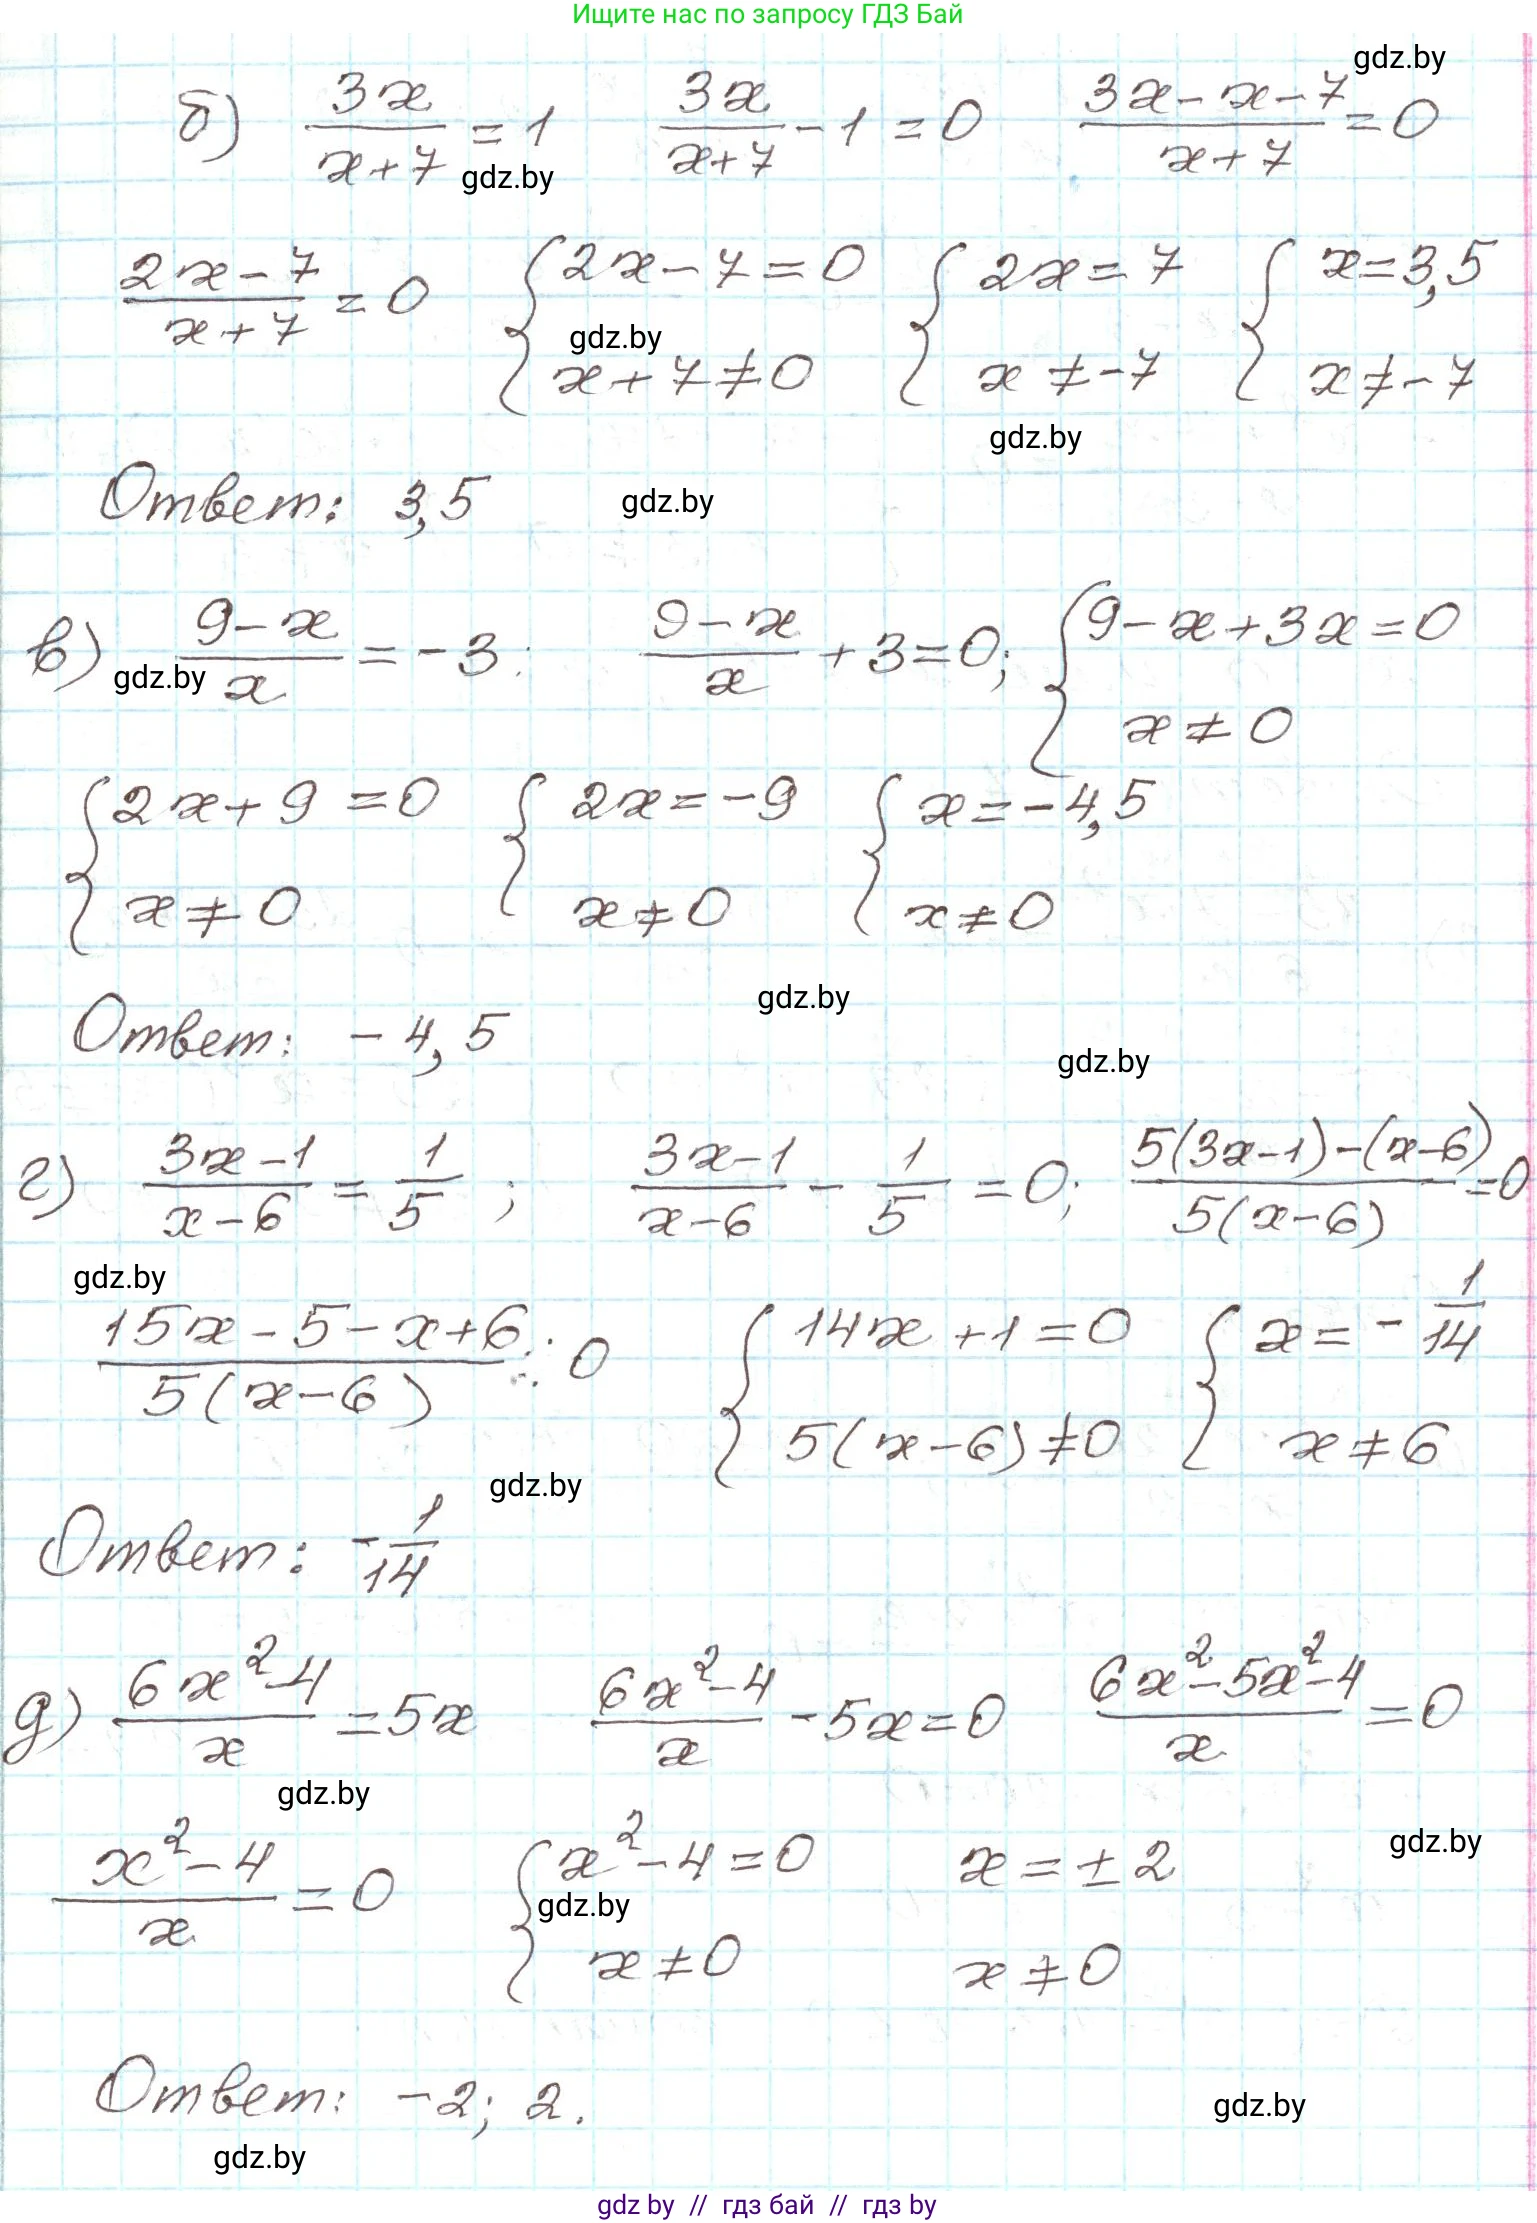 Ищите нас по запросу ГДЗ Бай
gdz.by
б) 3x/(x+7) = 1   3x/(x+7) - 1 = 0   (3x-x-7)/(x+7) = 0
gdz.by
(2x-7)/(x+7) = 0   { 2x-7=0   { 2x=7   { x=3,5
gdz.by
x+7≠0   x≠-7   x≠-7
gdz.by
Ответ: 3,5   gdz.by
в) (9-x)/x = -3;   (9-x)/x + 3 = 0;   { 9-x+3x=0
gdz.by
x≠0
{ 2x+9=0   { 2x=-9   { x=-4,5
x≠0   x≠0   x≠0
gdz.by
Ответ: -4,5
gdz.by
г) (3x-1)/(x-6) = 1/5;   (3x-1)/(x-6) - 1/5 = 0;   (5(3x-1)-(x-6))/(5(x-6)) = 0
gdz.by
(15x-5-x+6)/(5(x-6)) = 0   { 14x+1=0   { x=-1/14
5(x-6)≠0   x≠6
gdz.by
Ответ: -1/14
д) (6x²-4)/x = 5x   (6x²-4)/x - 5x = 0   (6x²-5x²-4)/x = 0
gdz.by
gdz.by
(x²-4)/x = 0   { x²-4=0   x=±2
gdz.by
x≠0   x≠0
Ответ: -2; 2.
gdz.by
gdz.by
gdz by // гдз бай // гдз by